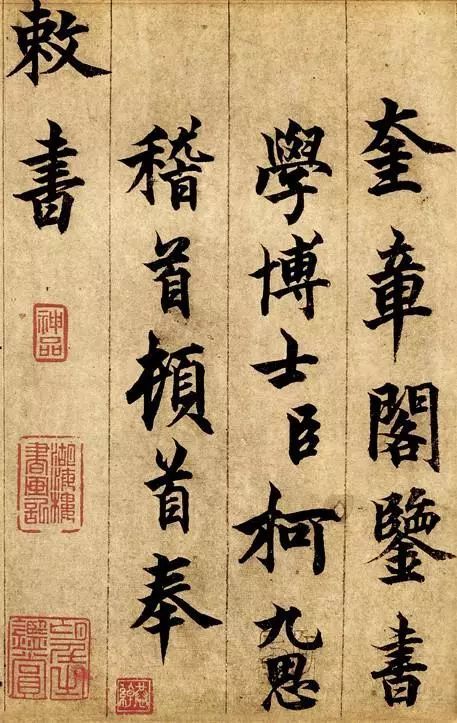 奎章閣鑒書
學博士臣柯九思
稽首頓首奉
敕書
神品